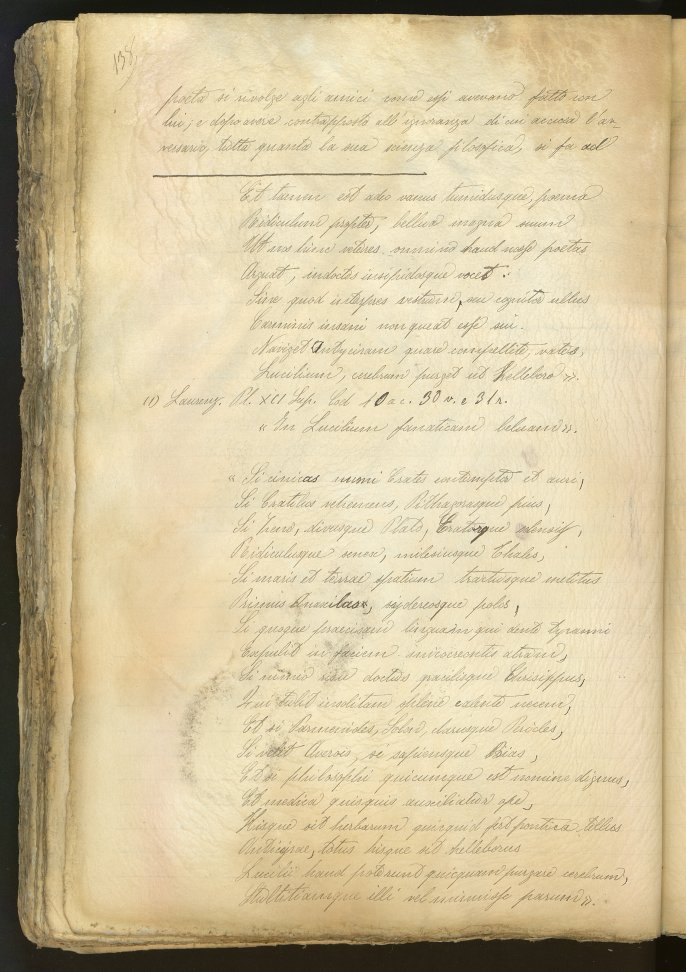 138
poeta si rivolge agli amici come essi avevano fatto con
lui, e dopo avere contrapposto all'ignoranza di cui accusa l'av-
versario, tutta quanta la sua scienza filosofica, si fa ad
Et tamen est adeo vanus tumidusque, poema
Ridiculum propter, bellua magna suum
Ut nos hunc veteres omnino haud nosse poetas
Arguat, indoctos insipidosque vocet:
Sive quod interpres vestrum, seu cognitor ullus
Carminis insani non queat esse sui.
Naviget Antyciram quare compellite, vates,
Lucilium, cerebrum purget ut Helleboro».
(1) Laurenz. Pl. XCI Sup. Cod 10 a c. 30 v. e 31 r.
« In Lucilium fanaticam beluam».
« Si cinicas nummi Crates contemptor et auri,
Si Cratilus vehemens, Pithagorasque pius,
Si Zeno, divusque Plato,
Ridiculusque senex, milesiusque Thales,
Si maris et terrae spatium tractusque metitus
Primus Anaxilaos, sydereosque polos,
Si quoque praecisam linguam qui dente tyranni
Expulit in faciem atram,
Si nimio risu doctus gravisque Chrisippus,
tulit insolitam splene calente necem,
Et si Parmenides, Solon, clarusque Pericles,
Si velit Averois, si sapiensque Bias,
Et si philosophi quicumque est nomine dignus,
Et medica quisquis auxiliatur ope,
Hisque sit herbarum quicquid fert pontica tellus
Anticyrae, totus hisque sit helleborus
Lucilii haud poterunt quicquam purgare cerebrum,
Stultitiamque illi vel minuisse parum».